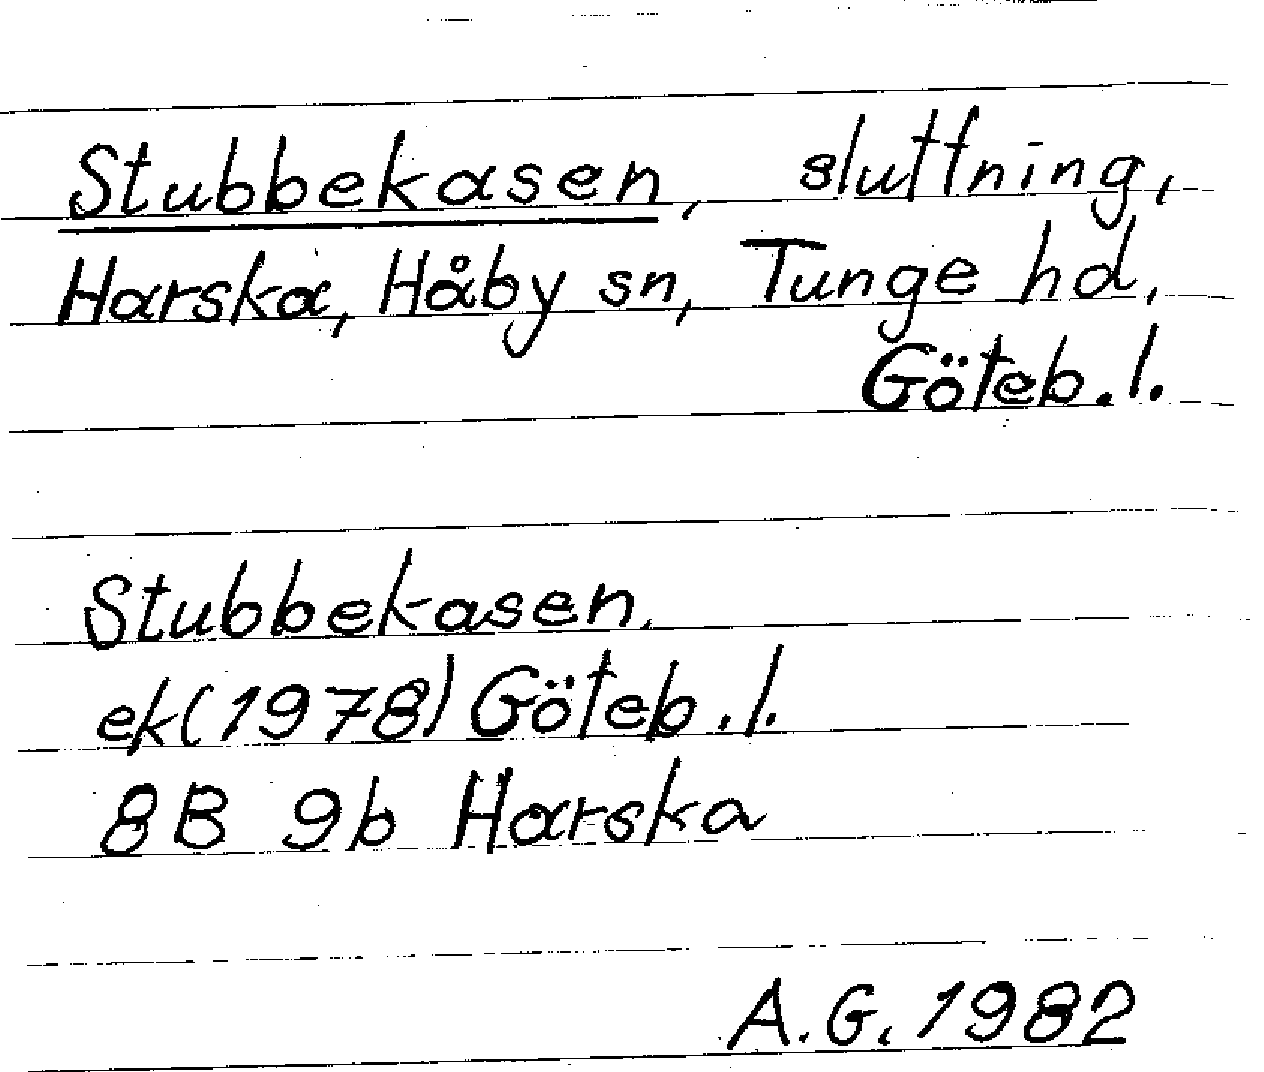 Stubbekasen, sluttning,
Harska, Håby sn, Tunge hd,
Göteb. l.
Stubbekasen.
ek (1978) Göteb. l.
8B 9b Harska
A.G. 1982